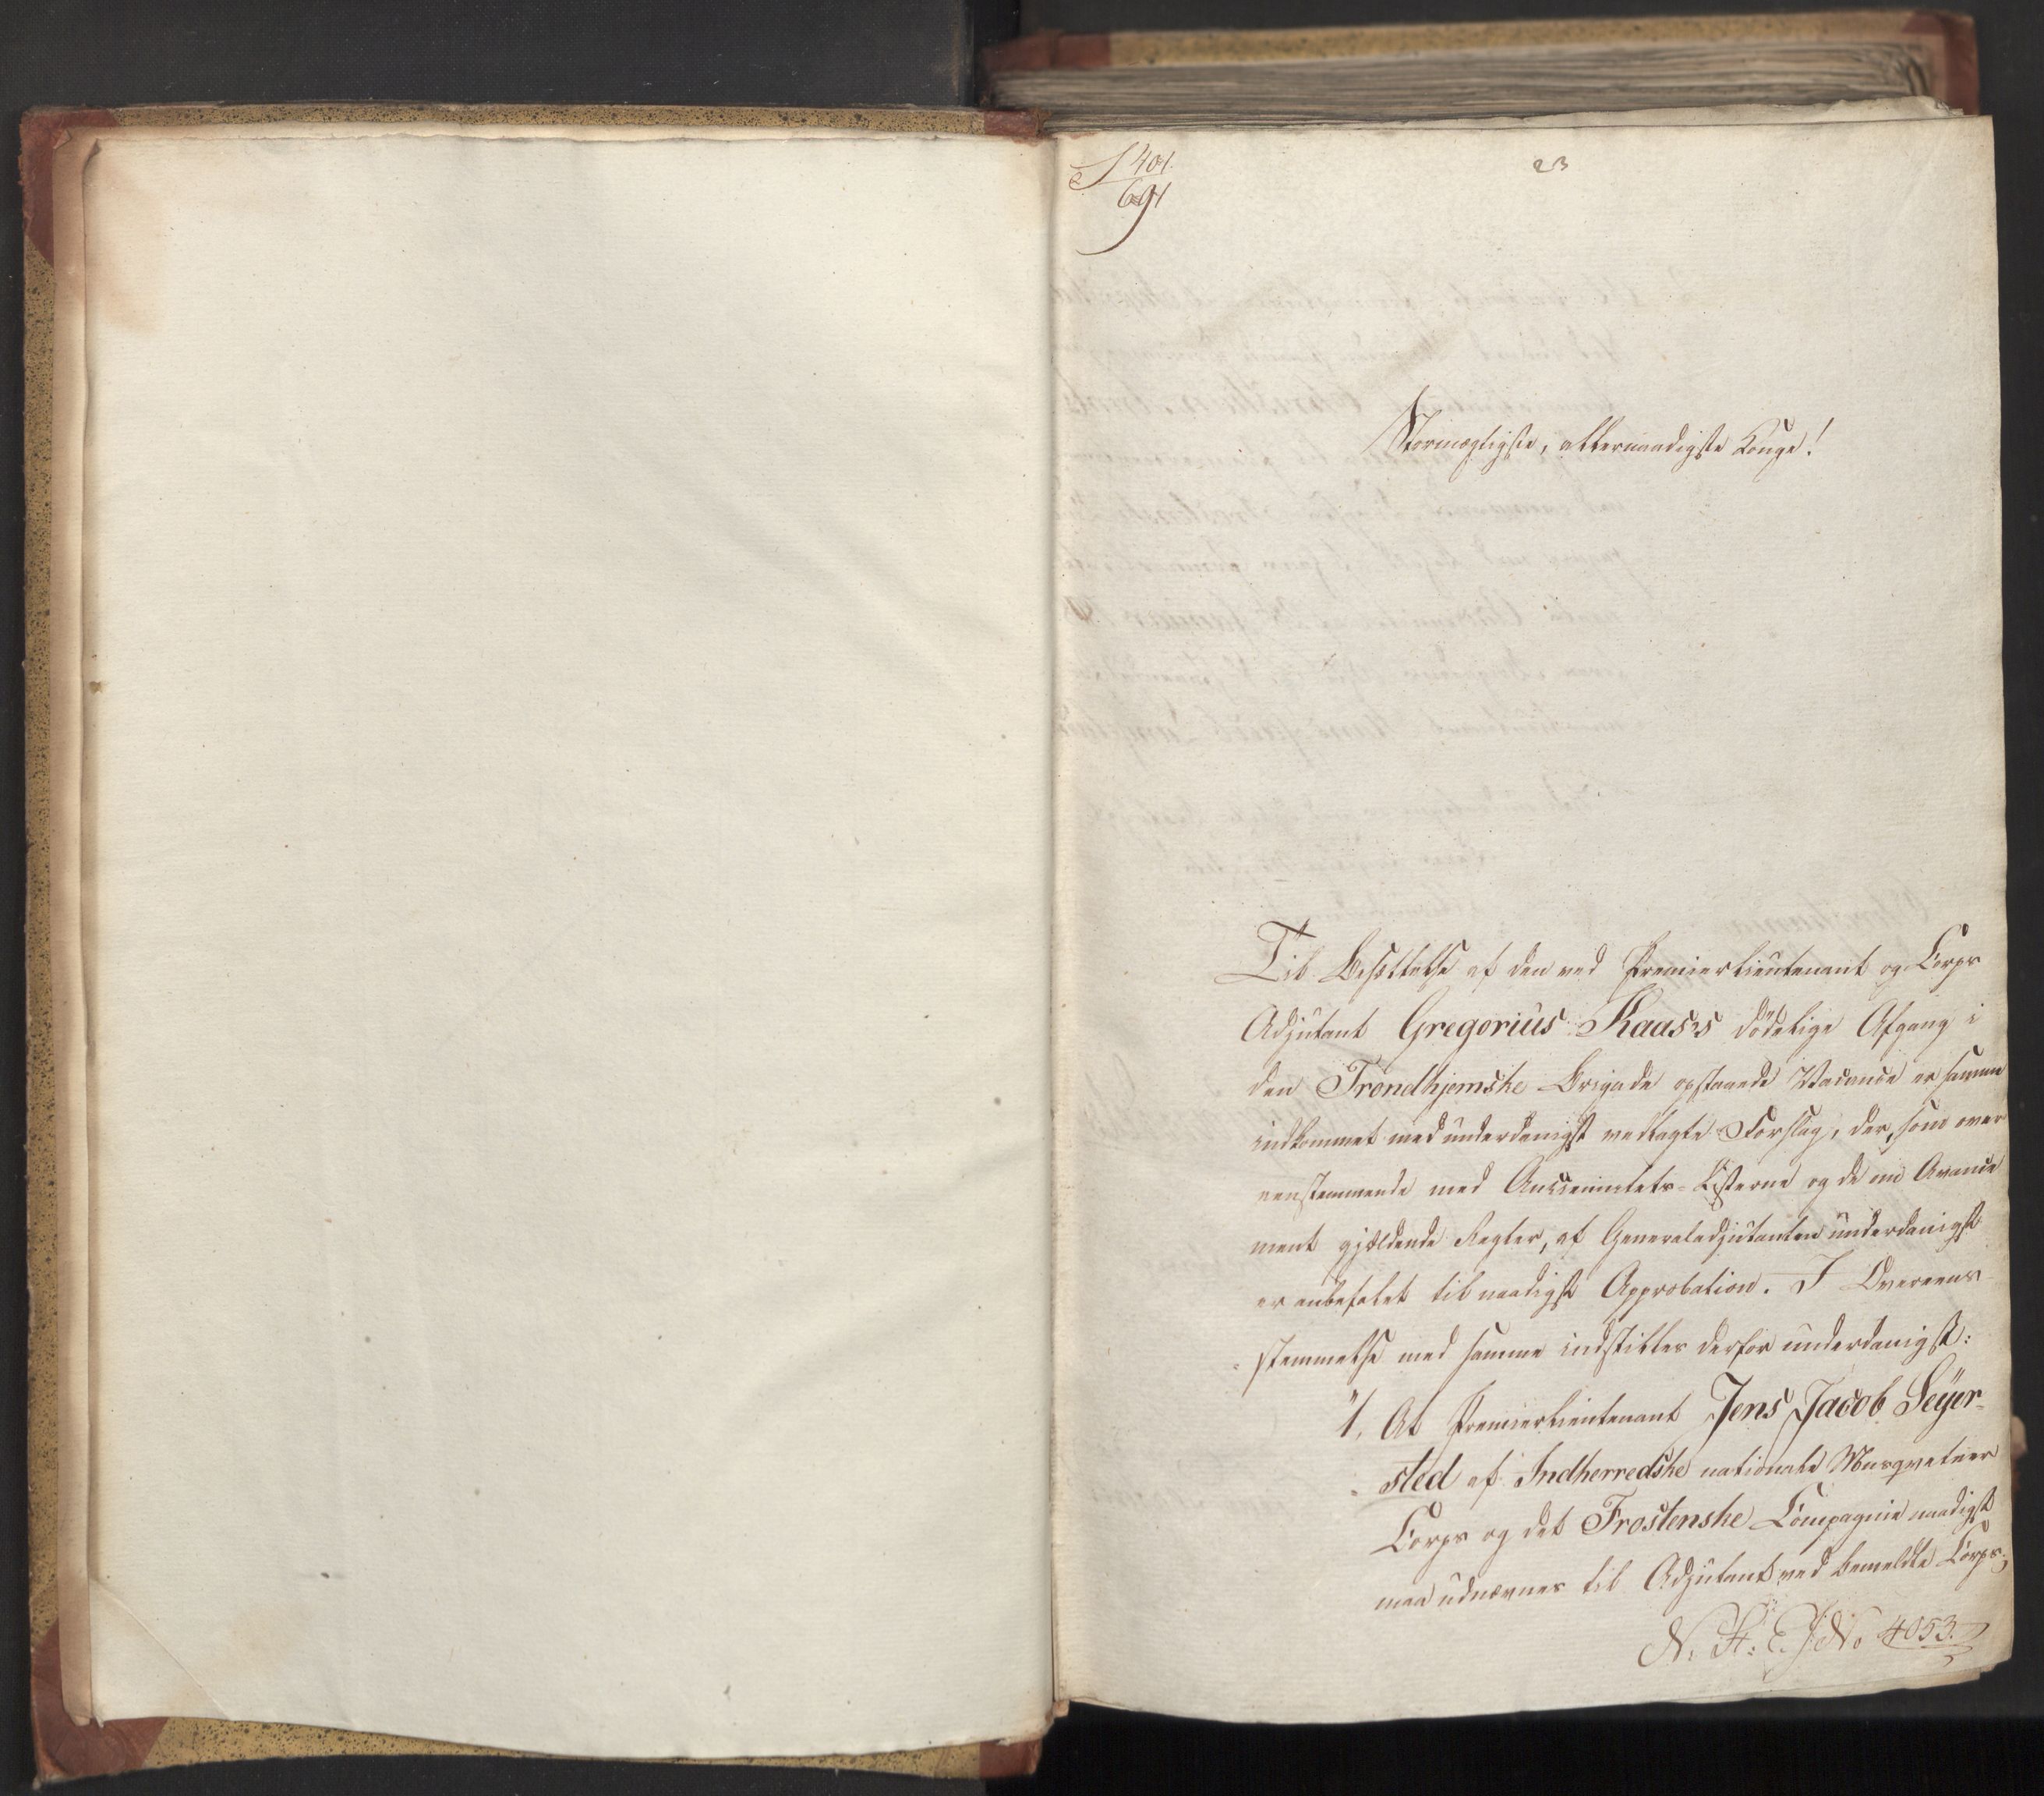 401.
691
23
Stormægtigste, allernaadigste Konge!
Til Besættelse af den ved Premierlieutenant og Corps
Adjutant Gregorius Kaas's dödelige Afgang i
den Trondhjemske Brigade opstaaede Vacance er samme
indkommet med underdanigst vedlagte Forslag, der, som over
eenstemmende med Anciennitets-Listerne og de om Avance
ment gjældende Regler, af Generaladjutanten underdanigst
er anbefalet til naadigst Approbation. I Overeens
stemmelse med samme indstilles derfor underdanigst:
1, At Premierlieutenant Jens Jacob Seÿer-
sted af Indherredske nationale Musqueteer
Corps og det Frostenske Compagnie naadigst
maa udnævnes til Adjutant ved bemeldte Corps;
N. H: E. J. No 4053.